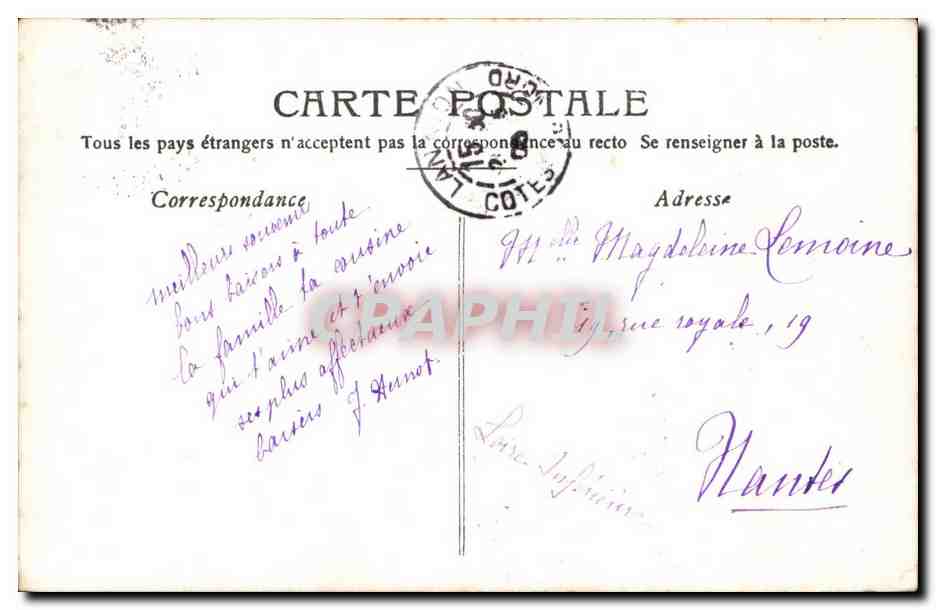 CARTE POSTALE
Tous les pays étrangers n'acceptent pas la correspondance au recto Se renseigner à la poste.
LAN COTES NORD
15
Correspondance
meilleurs souvenir
bons baisers à toute
la famille ta cousine
qui t'aime et t'envoie
ses plus affectueux
baisers J.
Adresse
Melle Magdeleine Lemoine
19, rue royale, 19
Nantes
Loire Inférieure
CPAPHIL